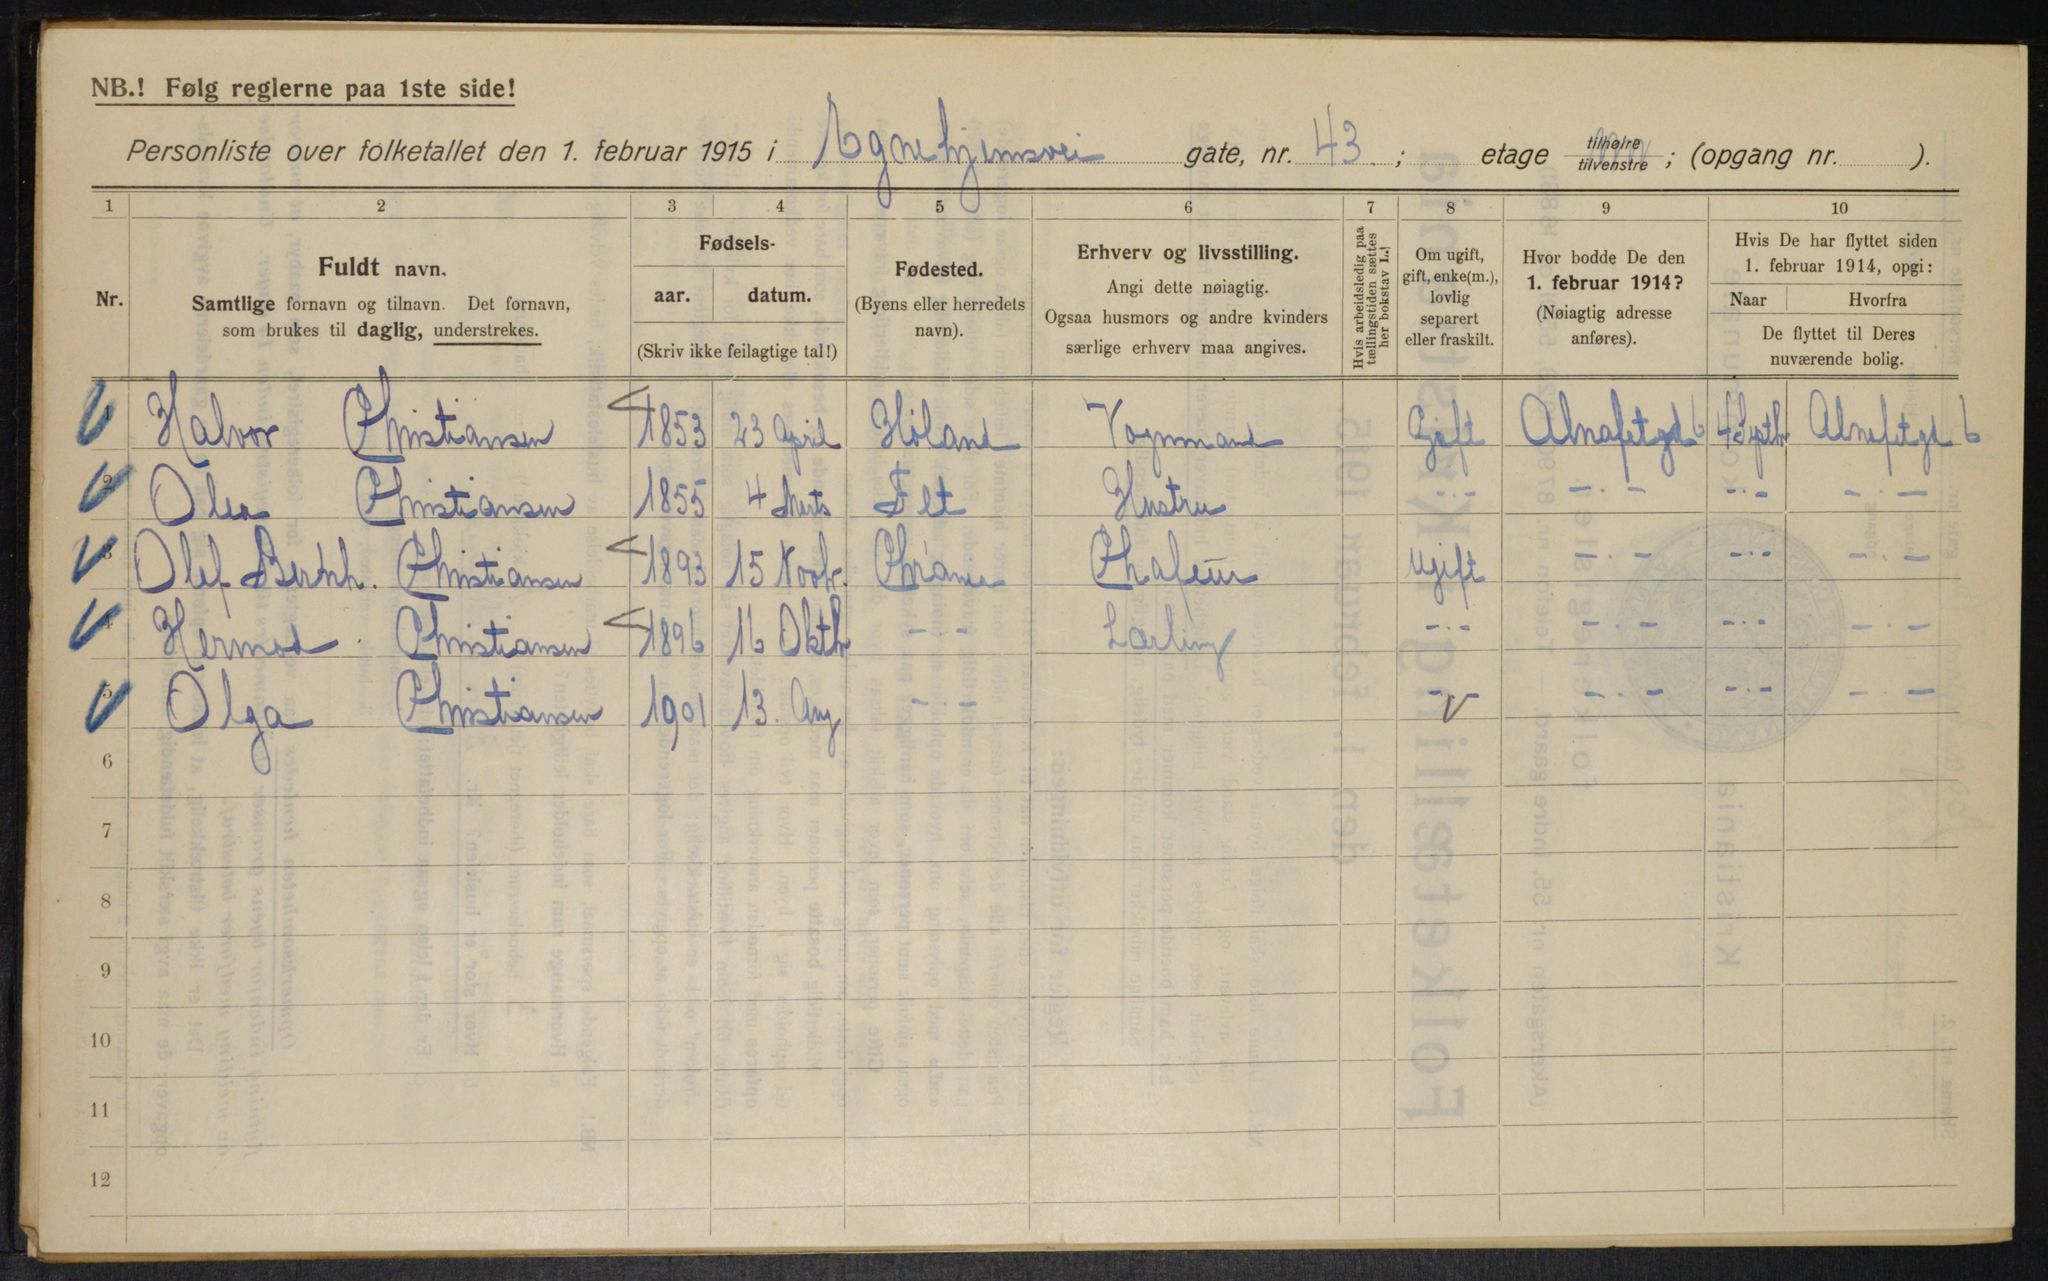 NB.! Følg reglerne paa 1ste side!
Personliste over folketallet den 1. februar 1915 i Egnehjemsvei gate, nr. 43 ; etage tilhøire tilvenstre ; (opgang nr. ).
1 2 3 4 5 6 7 8 9 10
Nr.
Fuldt navn.
Samtlige fornavn og tilnavn. Det fornavn,
som brukes til daglig, understrekes.
Fødsels-
aar. datum.
(Skriv ikke feilagtige tal!)
Fødested.
(Byens eller herredets
navn).
Erhverv og livsstilling.
Angi dette nøiagtig.
Ogsaa husmors og andre kvinders
særlige erhverv maa angives.
Hvis arbeidsledig paa
tællingstiden sættes
her bokstav L.!
Om ugift,
gift, enke(m.),
lovlig
separert
eller fraskilt.
Hvor bodde De den
1. februar 1914?
(Nøiagtig adresse
anføres).
Hvis De har flyttet siden
1. februar 1914, opgi:
Naar Hvorfra
De flyttet til Deres
nuværende bolig.
1 Halvor Christiansen 1853 23 April Høland Vognmand Gift Alnafetgd 6 4 Septb. Alnafetgd 6
2 Olea Christiansen 1855 4 Marts Fet Hustru -..- -.- -..- -.-
3 Olef Bernh. Christiansen 1893 15 Novbr. Chr.ania Chafeur Ugift -.- -..- -.-
4 Hermod Christiansen 1896 16 Oktb - - Lærling -..- -.- -..- -.-
5 Olga Christiansen 1901 13. Aug -.- - -.- -.- -.-
6
7
8
9
10
11
12